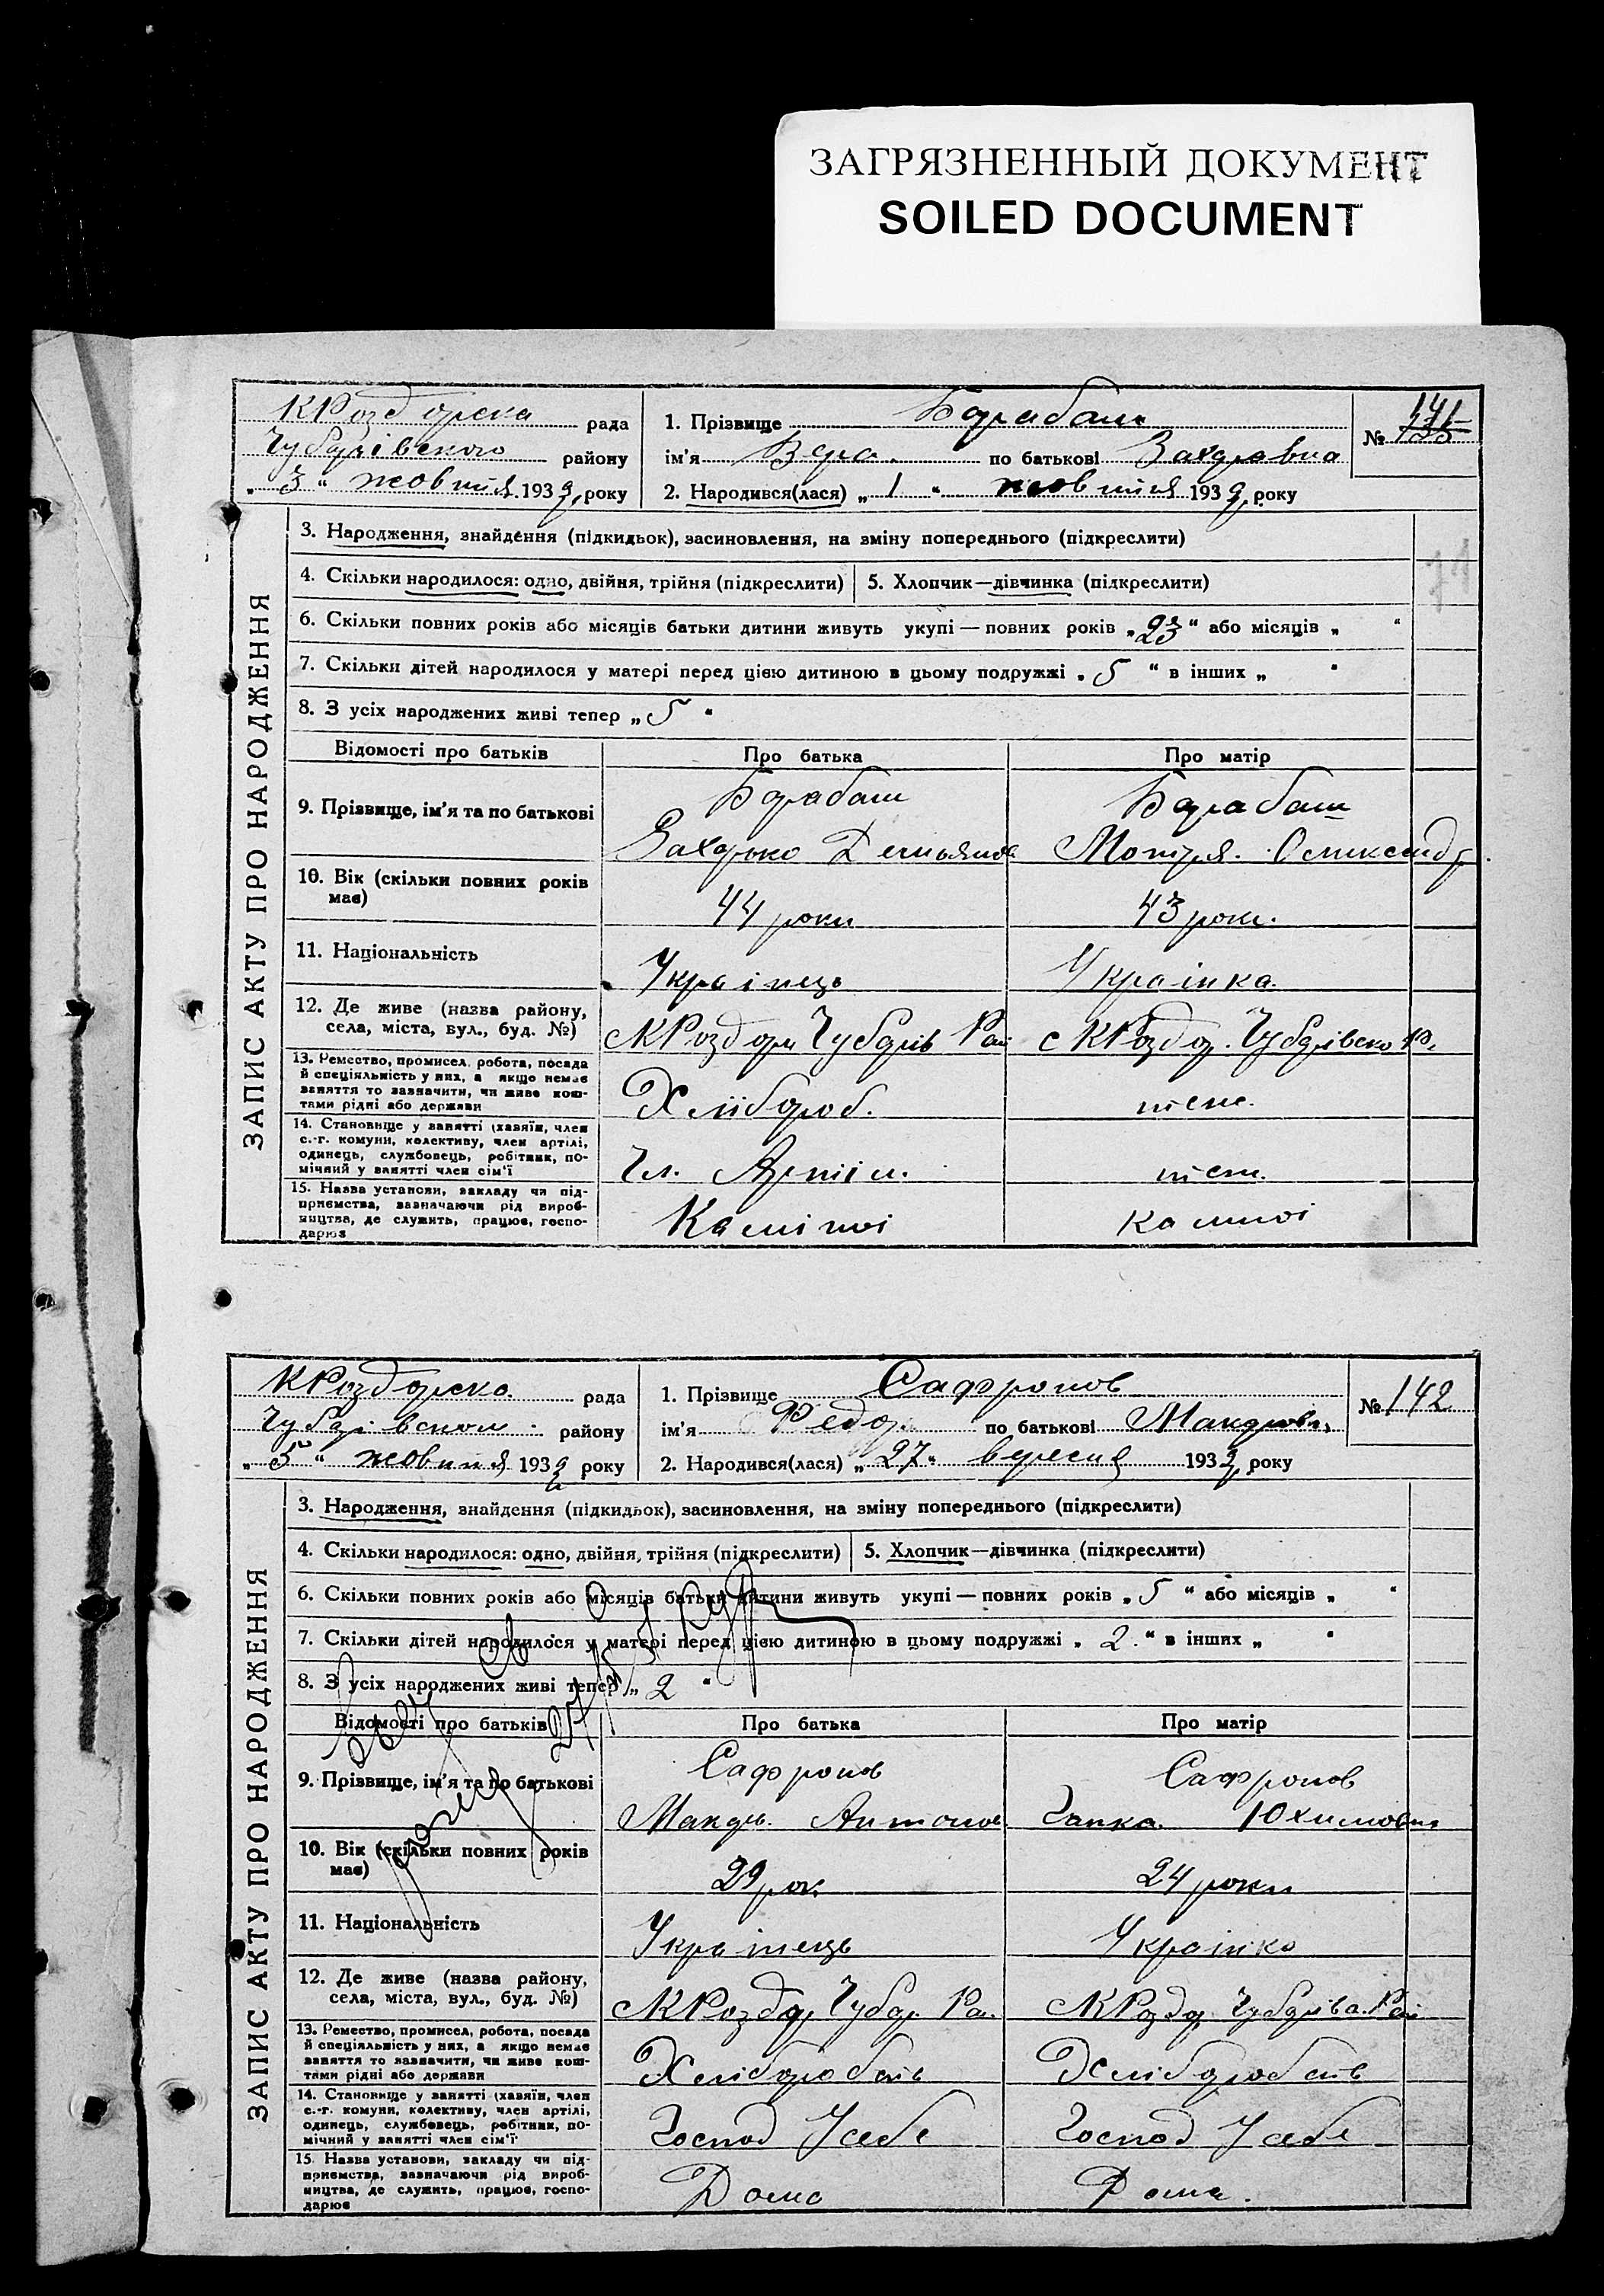 ЗАГРЯЗНЕННЫЙ ДОКУМЕНТ
SOILED DOCUMENT
КРоздорска рада
Чубарівского району
„ 3 “ жовтня 1939 року
1. Прізвище Барабаш
ім'я Вера по батькові Захаровна
2. Народився(лася) „ 1 “ жовтня 1939 року
№ 141
ЗАПИС АКТУ ПРО НАРОДЖЕННЯ
3. Народження, знайдення (підкидьок), засиновлення, на зміну попереднього (підкреслити)
4. Скільки народилося: одно, двійня, трійня (підкреслити) 5. Хлопчик—дівчинка (підкреслити)
6. Скільки повних років або місяців батьки дитини живуть укупі — повних років „ 23 “ або місяців „ “
7. Скільки дітей народилося у матері перед цією дитиною в цьому подружжі „ 5 “ в інших „ “
8. З усіх народжених живі тепер „ 5 “
Відомості про батьків Про батька Про матір
9. Прізвище, ім'я та по батькові
Барабаш Барабаш
Захарько Демьянов Мотря
10. Вік (скільки повних років має)
44 роки 43 роки.
11. Національність
Украінець Украінка
12. Де живе (назва району, села, міста, вул., буд. №)
с КРоздор Чубарів Рай с КРоздор. Чубарівско Р.
13. Ремество, промисел, робота, посада
й спеціяльність у них, а якщо немає
заняття то зазначити, чи живе кош-
тами рідні або держави
Хлібороб. теж.
14. Становище у занятті (хазяїн, член
с.-г. комуни, колективу, член артілі,
одинець, службовець, робітник, по-
мічний у занятті член сім'ї
Чл. Артіл. теж.
15. Назва установи, закладу чи під-
приємства, зазначаючи рід вироб-
ництва, де служить, працює, госпо-
дарює
КРоздорска рада
Чубарівском району
„ 5 “ жовтня 1939 року
1. Прізвище Сафронов
ім'я Федор по батькові
2. Народився(лася) „ 27 “ вересня 1939 року
№ 142
ЗАПИС АКТУ ПРО НАРОДЖЕННЯ
3. Народження, знайдення (підкидьок), засиновлення, на зміну попереднього (підкреслити)
4. Скільки народилося: одно, двійня, трійня (підкреслити) 5. Хлопчик—дівчинка (підкреслити)
6. Скільки повних років або місяців батьки дитини живуть укупі — повних років „ 5 “ або місяців „ “
7. Скільки дітей народилося у матері перед цією дитиною в цьому подружжі „ 2 “ в інших „ “
8. З усіх народжених живі тепер „ 2 “
Відомості про батьків Про батька Про матір
9. Прізвище, ім'я та по батькові
Сафронов Сафронов
Макар. Антонов Ганка Юхимовна
10. Вік (скільки повних років має)
29 рок. 24 роки
11. Національність
Украінець Украінка
12. Де живе (назва району, села, міста, вул., буд. №)
с КРоздор Чубар Ра. с КРоздор Чубарівс. Рай
13. Ремество, промисел, робота, посада
й спеціяльність у них, а якщо немає
заняття то зазначити, чи живе кош-
тами рідні або держави
Хліборобств Хліборобств
14. Становище у занятті (хазяїн, член
с.-г. комуни, колективу, член артілі,
одинець, службовець, робітник, по-
мічний у занятті член сім'ї
Господ У себе Господ У себе
15. Назва установи, закладу чи під-
приємства, зазначаючи рід вироб-
ництва, де служить, працює, госпо-
дарює
Дома Дома.